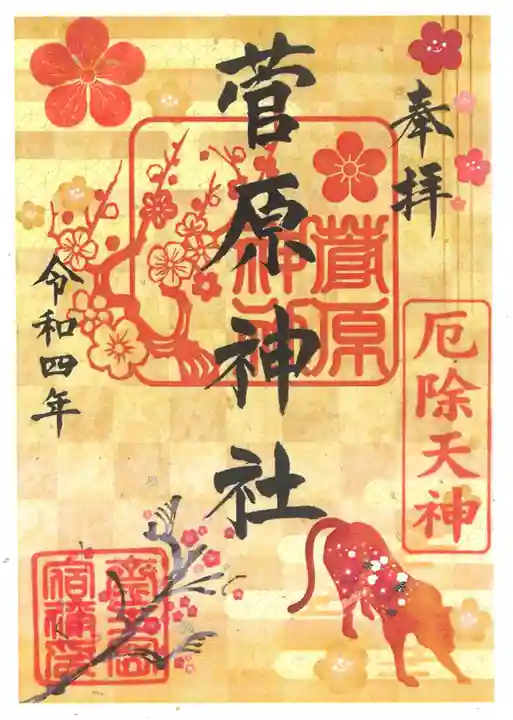 奉拝
厄除天神
菅原神社
菅原
神社
令和四年